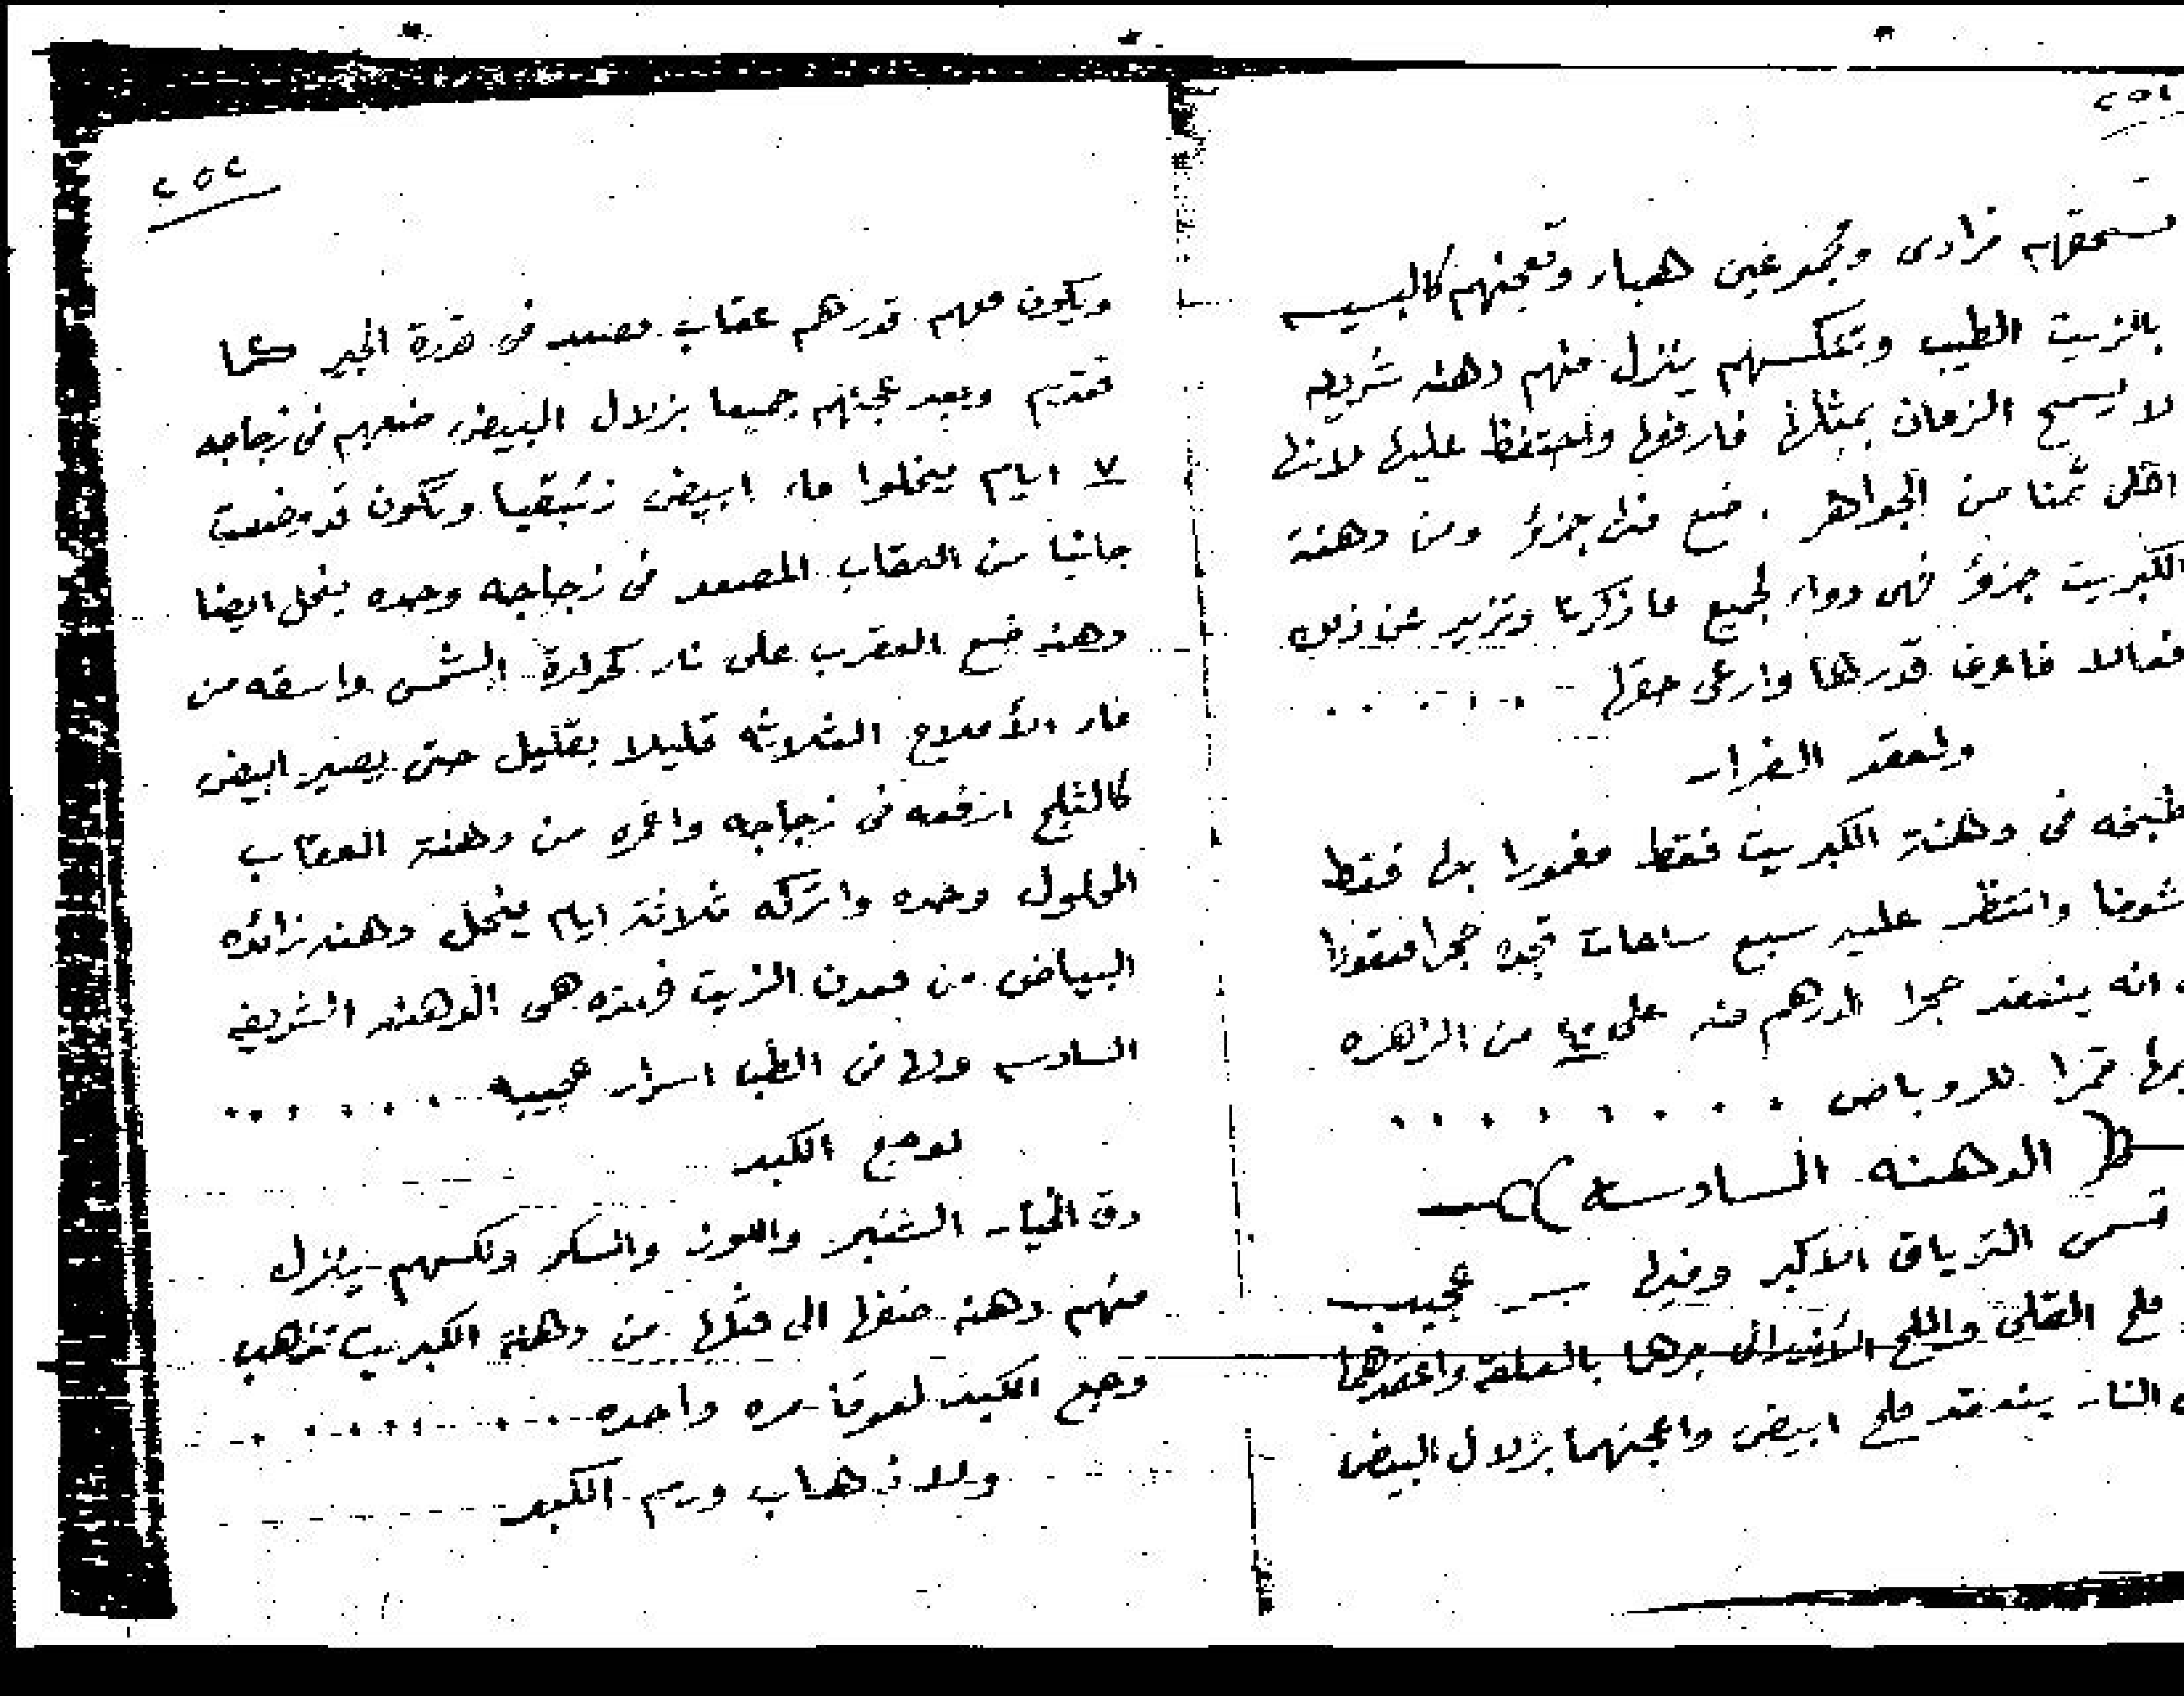 ٢٥١
تسحقهم فرادى ومجموعين هباء وتعجنهم كالبسيسه
بالزيت الطيب وتنكسهم ينزل منهم دهنه شريفه
لا يسمح الزمان بمثلها فارفقها واحتفظ عليها لانها
اغلى ثمنا من الجواهر . ضع منها جزؤ ومن دهنة
الكبريت جزؤ فهى دواء لجميع ما ذكرنا وتزيد عن ذلك
فعالا فاعرف قدرها وارعى حقها . . . . . .
ولعقد الفرار
طبخه فى دهنة الكبريت فقط مغمورا بها فقط
وانتظر عليه سبع ساعات تجده حجرا معقودا
انه ينعقد حجرا الدرهم منه على ٦٠ من الزهره
قمرا للروباص . . . . . . . . .
( الدهنه السادسه )
تسمى الترياق الاكبر وفيها سر عجيب
ملح القلى والملح الأندرانى حرها بالعلقة واعقدهما
النار ينعقد ملح ابيض واعجنهما بزلال البيض
٢٥٢
ويكون معهم قدرهم عقاب مصعد فى قدرة الجير كما
تقدم وبعد عجنهم جميعا بزلال البيض، ضعهم فى زجاجه
٧ ايام ينحلوا ماء ابيض زئبقيا وتكون قد وضعت
جانبا من العقاب المصعد فى زجاجه وحده ينحل ايضا
دهنه ضع العقرب على نار كحرارة الشمس واسقه من
ماء الأملاح الثلاثه قليلا بقليل حتى يصير ابيض
كالثلج ارفعه فى زجاجه واغمره من دهنة العقاب
المحلول وحده واتركه ثلاثة ايام ينحل دهنه زائده
البياض من معدن الزيت فهذه هى الدهنه الشريفه
السادسه ولها فى الطب اسرار عجيبه . . . . . . .
لوجع الكبد
دق الخيار الشنبر واللوز والسكر ونكسهم ينزل
منهم دهنه ضفها الى مثلها من دهنة الكبريت تذهب
وجع الكبد لعوقا مره واحده . . . . . . . .
وللاذهاب ورم الكبد